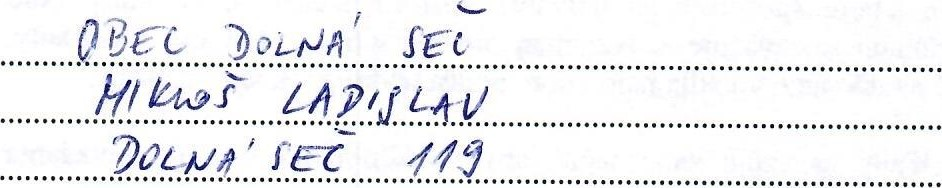 OBEC DOLNÁ SEČ
MIKLOŠ LADISLAV
DOLNÁ SEČ 119